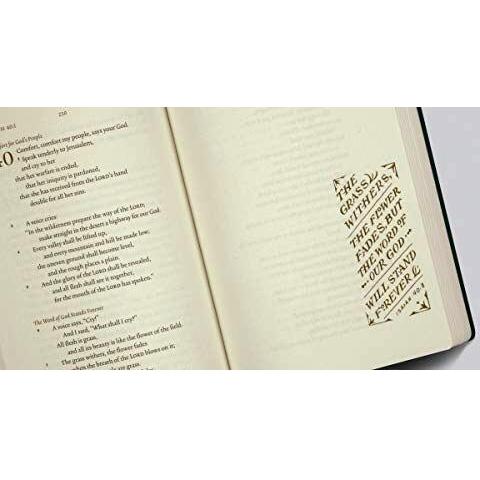 40:1
220
Comfort for God's People
40 Comfort, comfort my people, says your God.
Speak tenderly to Jerusalem,
and cry to her
that her warfare is ended,
that her iniquity is pardoned,
that she has received from the LORD's hand
double for all her sins.
A voice cries:
"In the wilderness prepare the way of the LORD;
make straight in the desert a highway for our God.
Every valley shall be lifted up,
and every mountain and hill be made low;
the uneven ground shall become level,
and the rough places a plain.
And the glory of the LORD shall be revealed,
and all flesh shall see it together,
for the mouth of the LORD has spoken."
The Word of God Stands Forever
A voice says, "Cry!"
And I said, "What shall I cry?"
All flesh is grass,
and all its beauty is like the flower of the field.
The grass withers, the flower fades
when the breath of the LORD blows on it;
are grass.
THE
GRASS
WITHERS,
THE FLOWER
FADES, BUT
THE WORD OF
OUR GOD
WILL STAND
FOREVER
ISAIAH 40:8